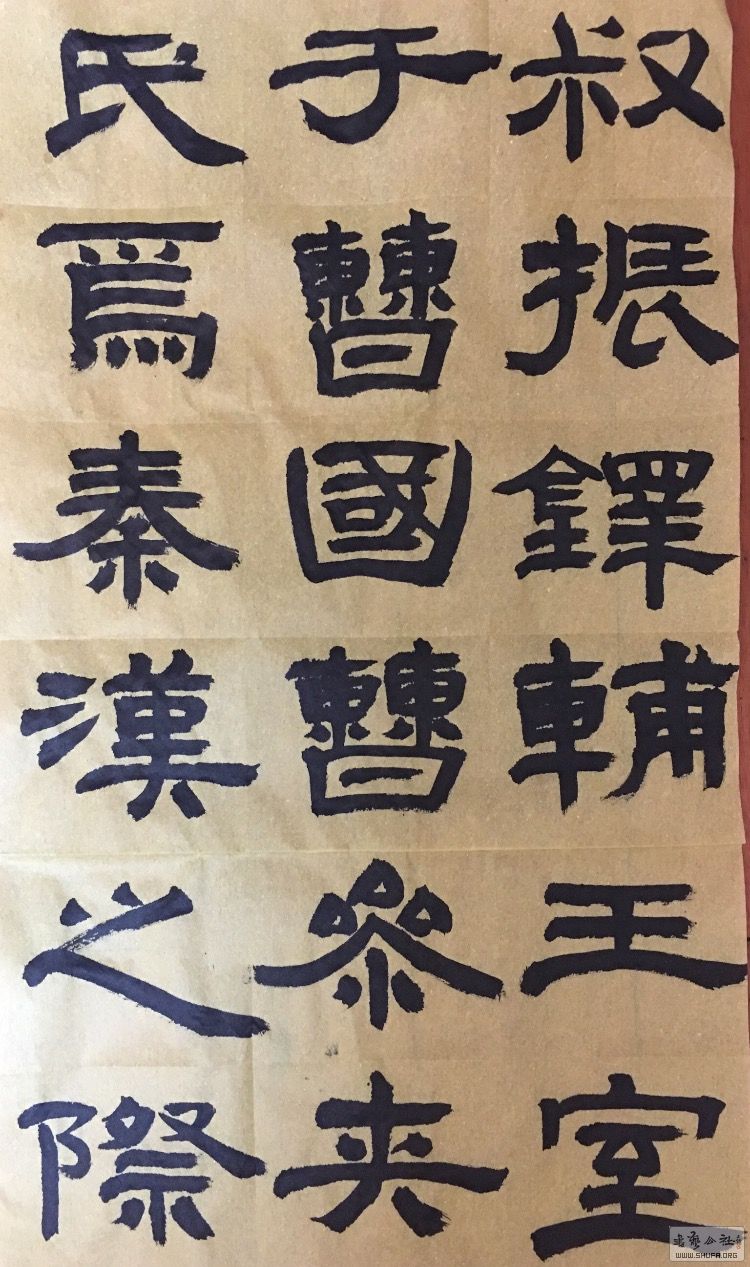 叔振鐸輔王室
于曹國曹參夾
氏焉秦漢之際
书艺公社
WWW.SHUFA.ORG